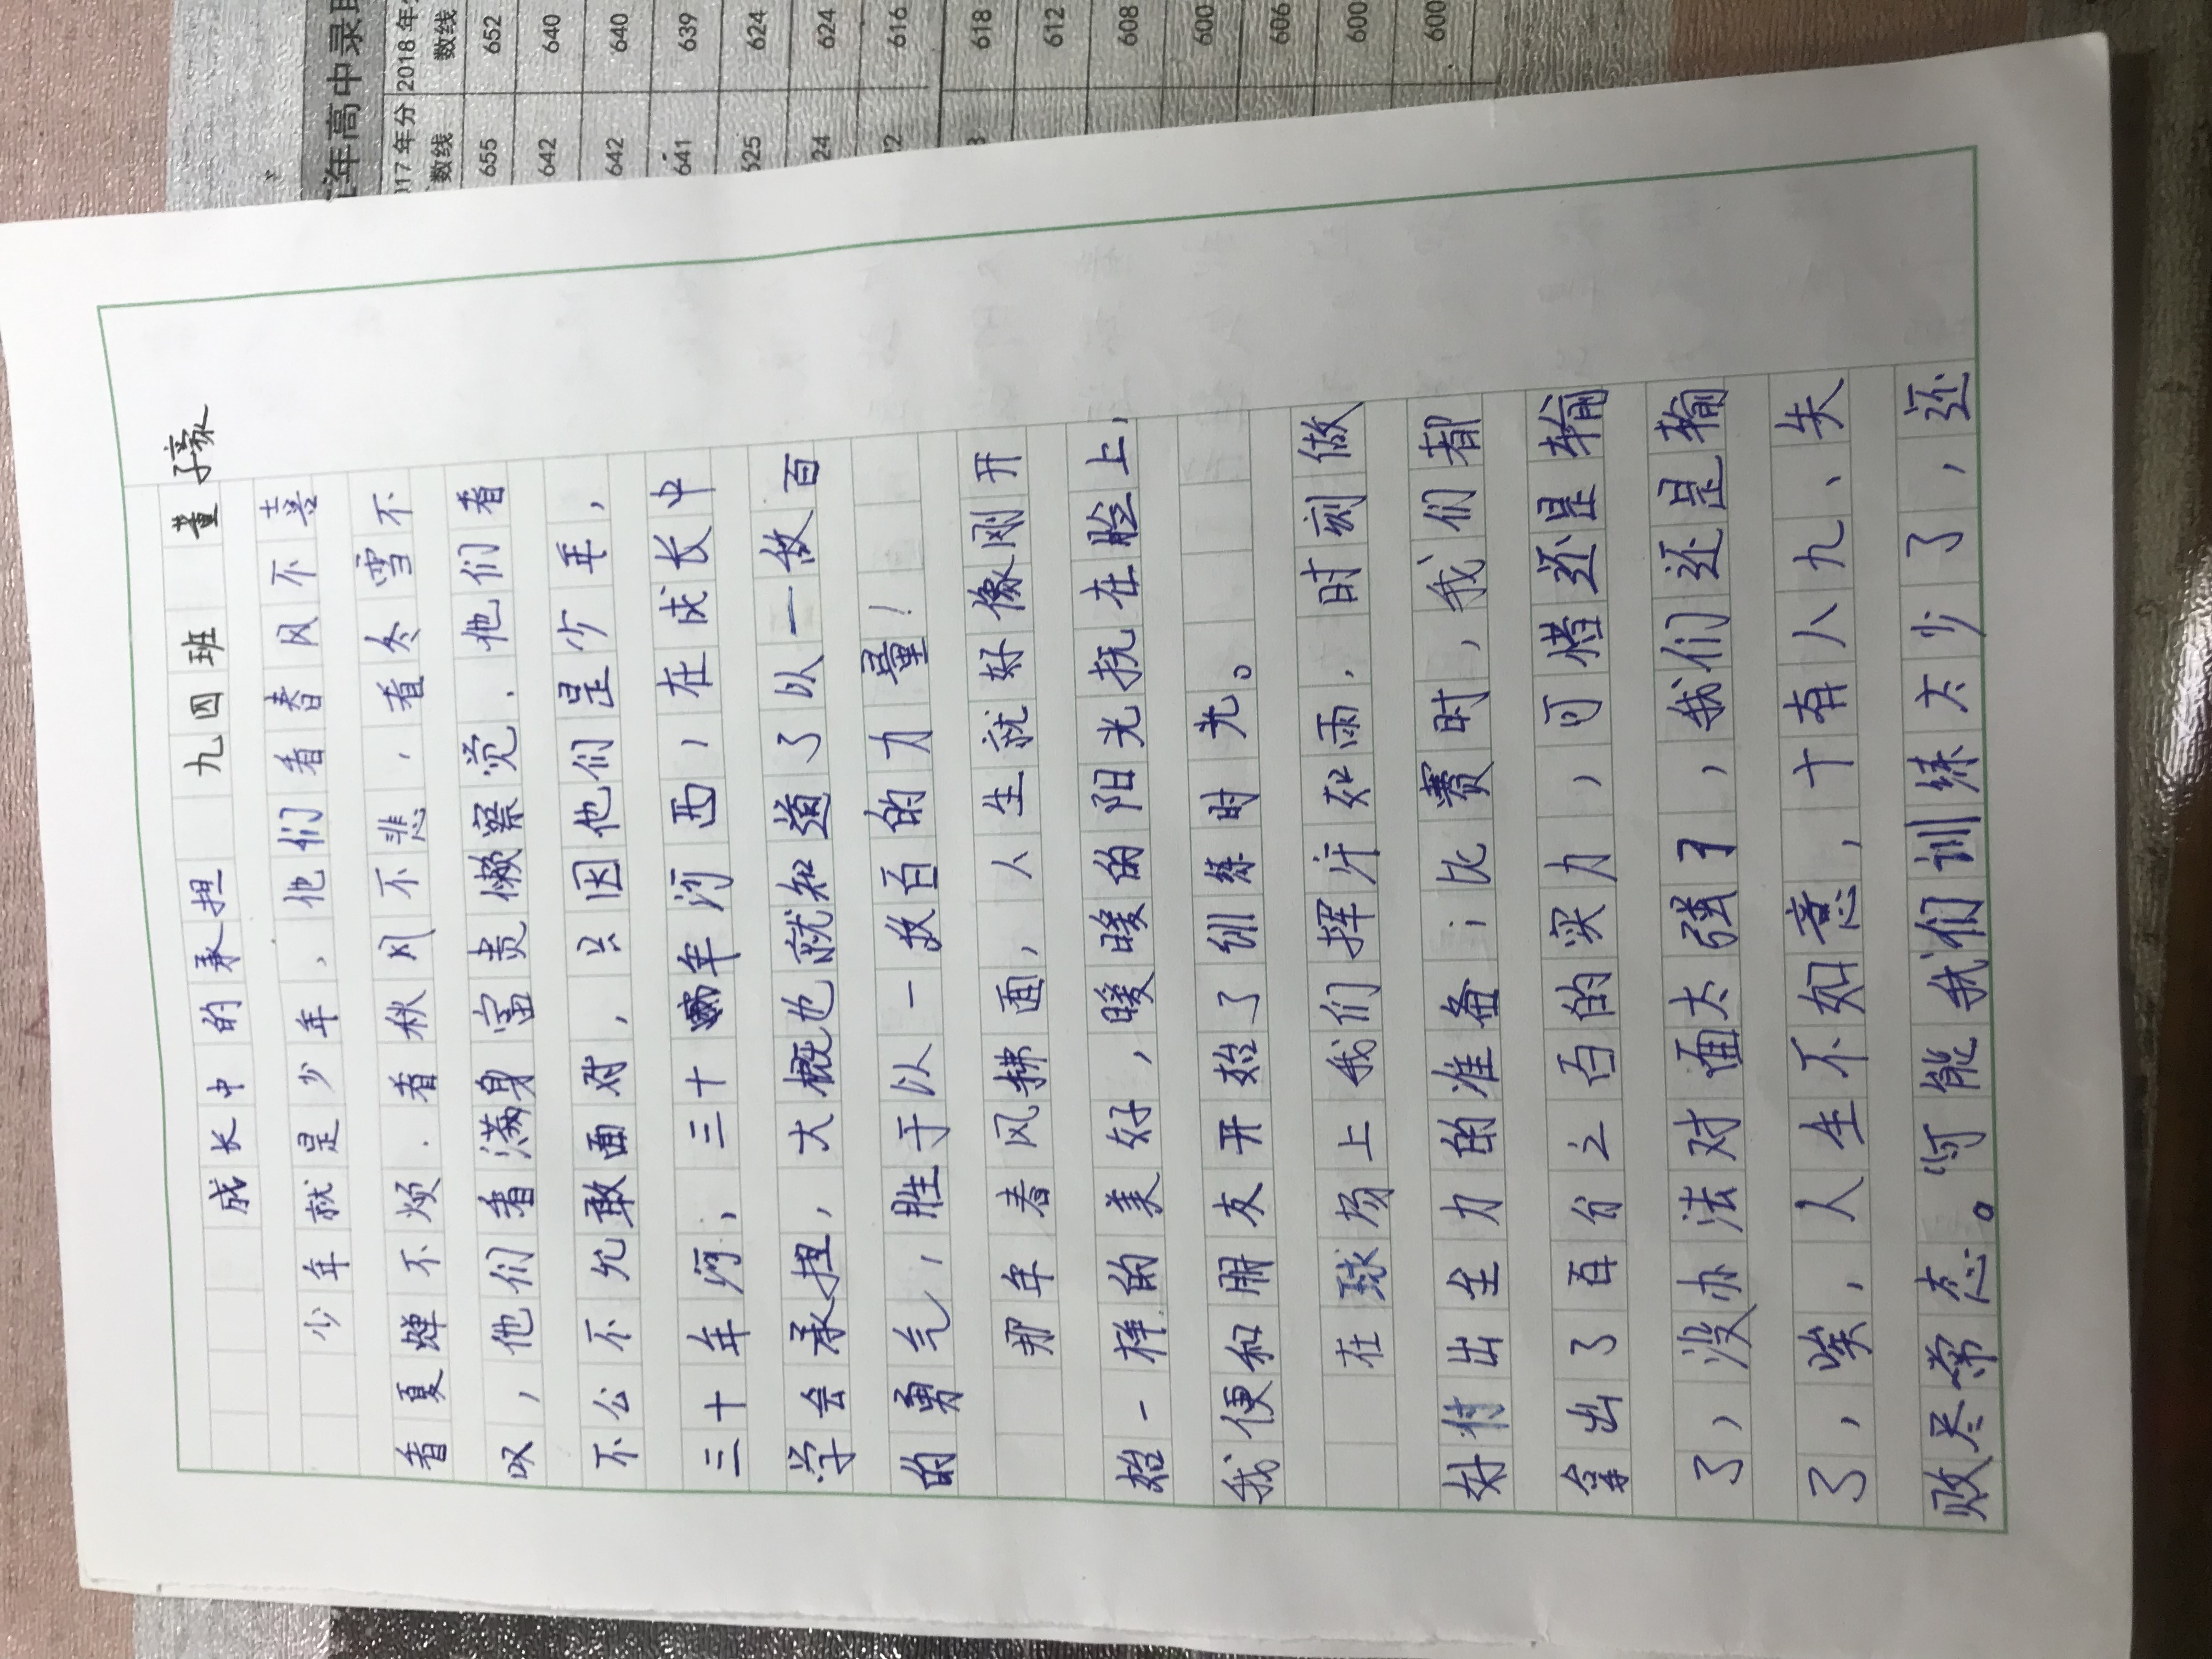 成长中的承担 九四班 董子豪
少年就是少年，他们看春风不喜
看夏蝉不烦．看秋风不悲，看冬雪不
叹，他们看满身富贵懒察觉．他们看
不公不允敢面对，只因他们是少年，
三十年河，三十年河西，在成长中
学会承担，大概也就知道了以一敌百
的勇气，胜于以一敌百的力量！
那年春风拂面，人生就好像刚开
始一样的美好，暖暖的阳光抚在脸上，
我便和朋友开始了训练时光。
在球场上我们挥汗如雨．时刻做
好付出全力的准备；比赛时，我们都
拿出了百分之百的实力，可惜还是输
了，没办法对面太强了，我们还是输
了，唉，人生不如意，十有八九、失
败尽常态。“可能我们训练太少了，还
近年高中录取
2017年分数线 2018年分数线
655 652
642 640
642 640
641 639
625 624
624 624
616
618
612
608
600
606
600
600